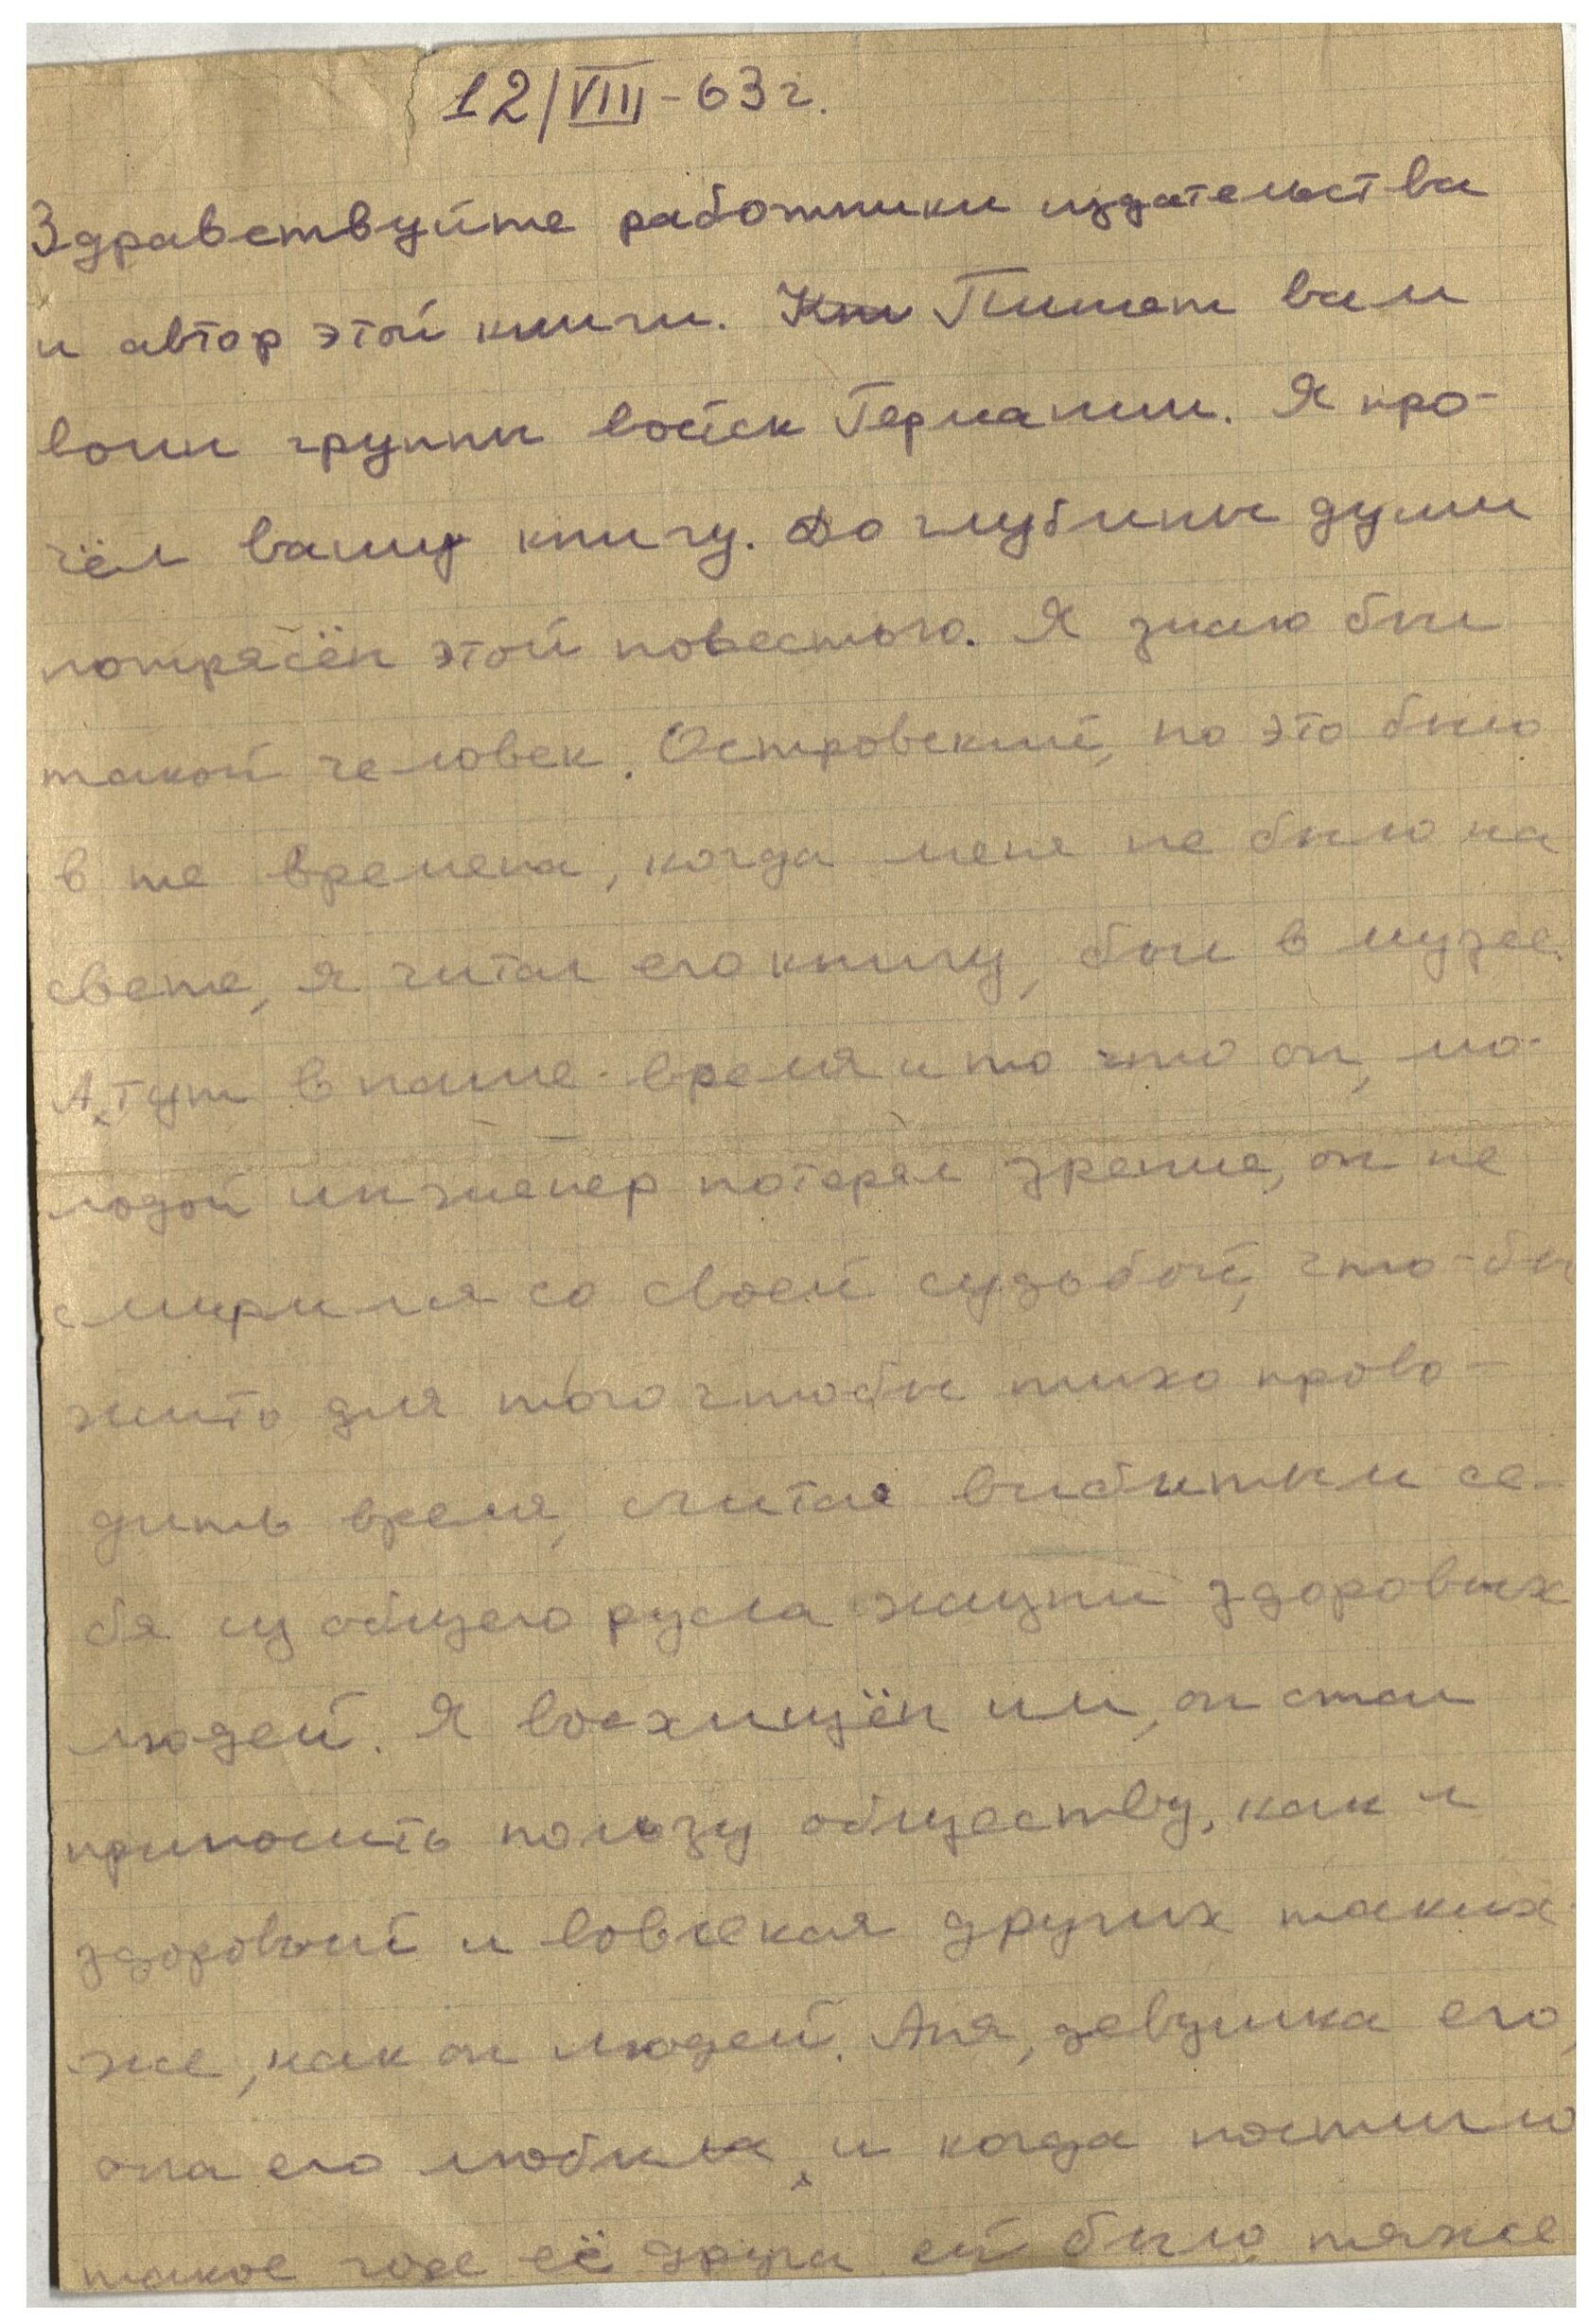 12/VIII-63г.
Здравствуйте работники издательства
и автор этой книги. Пишет вам
воин группы войск Германии. Я про-
чёл вашу книгу. До глубины души
потрясён этой повестью. Я знаю был
такой человек. Островский, но это было
в те времена, когда меня не было на
свете, я читал его книгу, был в музее.
А, тут в наше время и то что он, мо-
лодой инженер потерял зрение, он не
смирился со своей судьбой, что-бы
жить для того чтобы тихо прово-
дить время, считая выбитым се-
бя из общего русла жизни здоровых
людей. Я восхищён им, он стал
приносить пользу обществу, как и
здоровый и вовлекая других таких
же, как он людей. Аня, девушка его,
она его любила, и когда постигло
такое горе её друга ей было тяжело